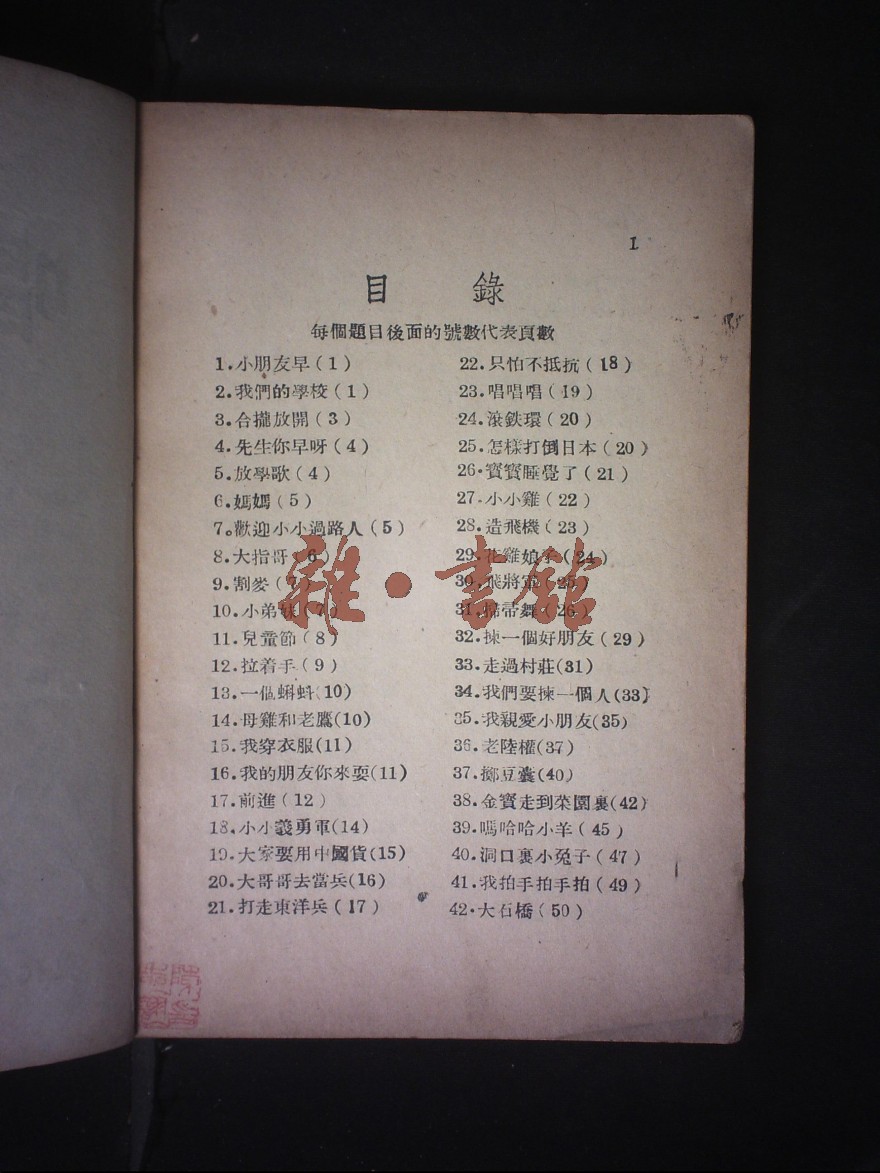 1
目錄
每個題目後面的號數代表頁數
1.小朋友早(1)
2.我們的學校(1)
3.合攏放開(3)
4.先生你早呀(4)
5.放學歌(4)
6.媽媽(5)
7.歡迎小小過路人(5)
8.大指哥(6)
9.割麥(7)
10.小弟妹(7)
11.兒童節(8)
12.拉着手(9)
13.一個蝌蚪(10)
14.母雞和老鷹(10)
15.我穿衣服(11)
16.我的朋友你來耍(11)
17.前進(12)
18.小小義勇軍(14)
19.大家要用中國貨(15)
20.大哥哥去當兵(16)
21.打走東洋兵(17)
22.只怕不抵抗(18)
23.唱唱唱(19)
24.滾鉄環(20)
25.怎樣打倒日本(20)
26.寶寶睡覺了(21)
27.小小雞(22)
28.造飛機(23)
29.花雞娘子(24)
30.飛將軍(25)
31.掃帚舞(26)
32.揀一個好朋友(29)
33.走過村莊(31)
34.我們要揀一個人(33)
35.我親愛小朋友(35)
36.老陸權(37)
37.擲豆囊(40)
38.金寶走到菜園裏(42)
39.嗎哈哈小羊(45)
40.洞口裏小兔子(47)
41.我拍手拍手拍(49)
42.大石橋(50)
雜·書館